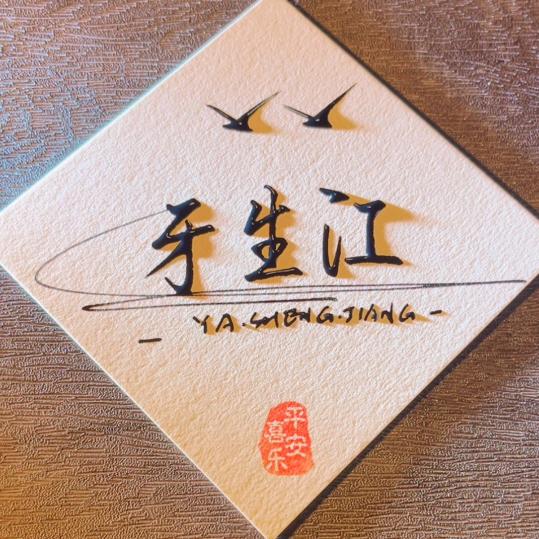 牙生江
- YA.SHENG.JIANG -
平安
喜乐